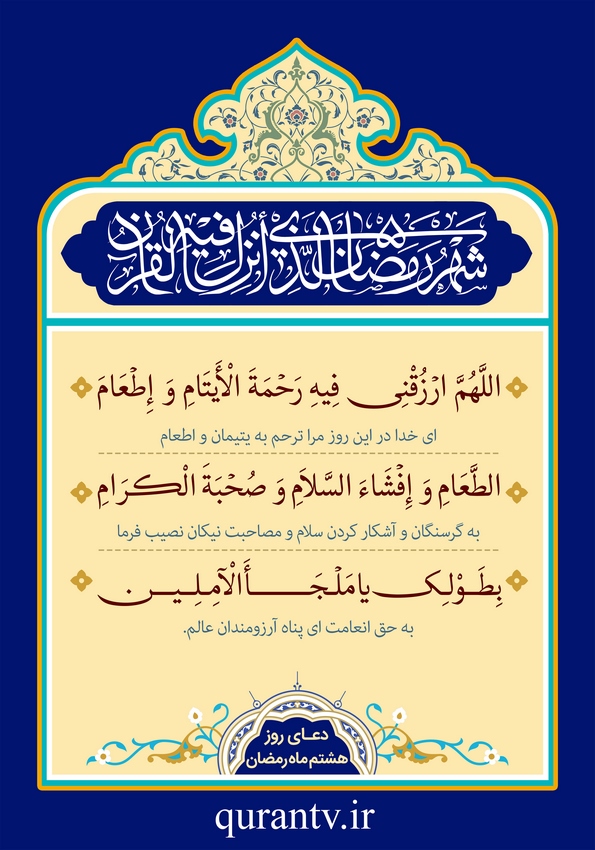 شهر رمضان الذي أنزل فيه القرآن
اللَّهُمَّ ارْزُقْنِی فِیهِ رَحْمَةَ الْأَیْتَامِ وَ إِطْعَامَ
ای خدا در این روز مرا ترحم به یتیمان و اطعام
الطَّعَامِ وَ إِفْشَاءَ السَّلاَمِ وَ صُحْبَةَ الْکِرَامِ
به گرسنگان و آشکار کردن سلام و مصاحبت نیکان نصیب فرما
بِطَوْلِکَ یا مَلْجَأَ الْآمِلِینَ
به حق انعامت ای پناه آرزومندان عالم.
دعای روز
هشتم ماه رمضان
qurantv.ir